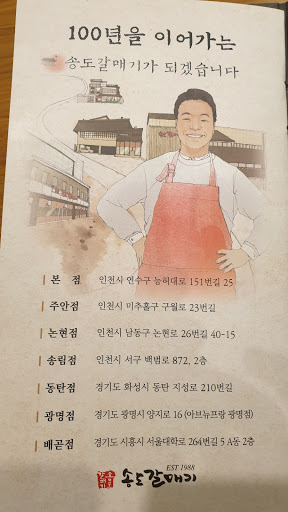 100년을 이어가는
송도갈매기가 되겠습니다
본 점 인천시 연수구 능허대로 151번길 25
주안점 인천시 미추홀구 구월로 23번길
논현점 인천시 남동구 논현로 26번길 40-15
송림점 인천시 서구 백범로 872, 2층
동탄점 경기도 화성시 동탄 지성로 210번길
광명점 경기도 광명시 양지로 16 (아브뉴프랑 광명점)
배곧점 경기도 시흥시 서울대학로 264번길 5 A동 2층
EST 1988
송도갈매기